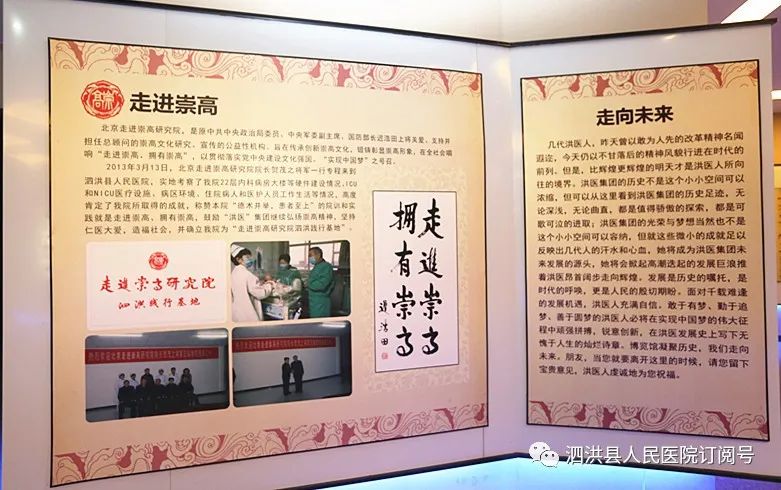 走进崇高
北京走进崇高研究院，是原中共中央政治局委员、中央军委副主席、国防部长迟浩田上将关爱、支持并
担任总顾问的崇高文化研究、宣传的公益性机构。旨在传承创新崇高文化，锻铸彰显崇高形象，在全社会唱
响“走进崇高、拥有崇高”，以贯彻落实党中央建设文化强国，“实现中国梦”之号召。
2013年3月13日，北京走进崇高研究院院长贺茂之将军一行专程来到
泗洪县人民医院，实地考察了我院22层内科病房大楼等硬件设施情况、ICU
和NICU医疗设施、病区环境、住院病人和医护人员工作生活等情况，高度
肯定了我院所取得的成就，称赞本院“德术并举、患者至上”的院训和实
践就是走进崇高、拥有崇高，鼓励“洪医”集团继续弘扬崇高精神，坚持
仁医大爱，造福社会，并确立我院为“走进崇高研究院泗洪践行基地”。
走進崇高研究院
泗洪践行基地
走進崇高
拥有崇高
迟浩田
走向未来
几代洪医人，昨天曾以敢为人先的改革精神名闻
遐迩，今天仍以不甘落后的精神风貌行进在时代的
前列。但是，比辉煌更辉煌的明天才是洪医人所向
往的境界。洪医集团的历史不是这个小小空间可以
浓缩，但可以从这里看到洪医集团的历史足迹，无
论深浅，无论曲直，都是值得骄傲的探索，都是可
歌可泣的进取；洪医集团的光荣与梦想当然也不是
这个小小空间可以容纳，但就这些微小的成就足以
反映出几代人的汗水和心血，她将成为洪医集团未
来发展的源头，她将会掀起高潮迭起的发展巨浪推
着洪医昂首阔步走向辉煌。发展是历史的嘱托，是
时代的呼唤，更是人民的殷切期盼。面对千载难逢
的发展机遇，洪医人充满自信。敢于有梦、勤于追
梦、善于圆梦的洪医人必将在实现中国梦的伟大征
程中顽强拼搏，锐意创新，在洪医发展史上写下无
愧于人生的灿烂诗章。博览馆凝聚历史，我们走向
未来。朋友，当您就要离开这里的时候，请您留下
宝贵意见，洪医人虔诚地为您祝福。
泗洪县人民医院订阅号